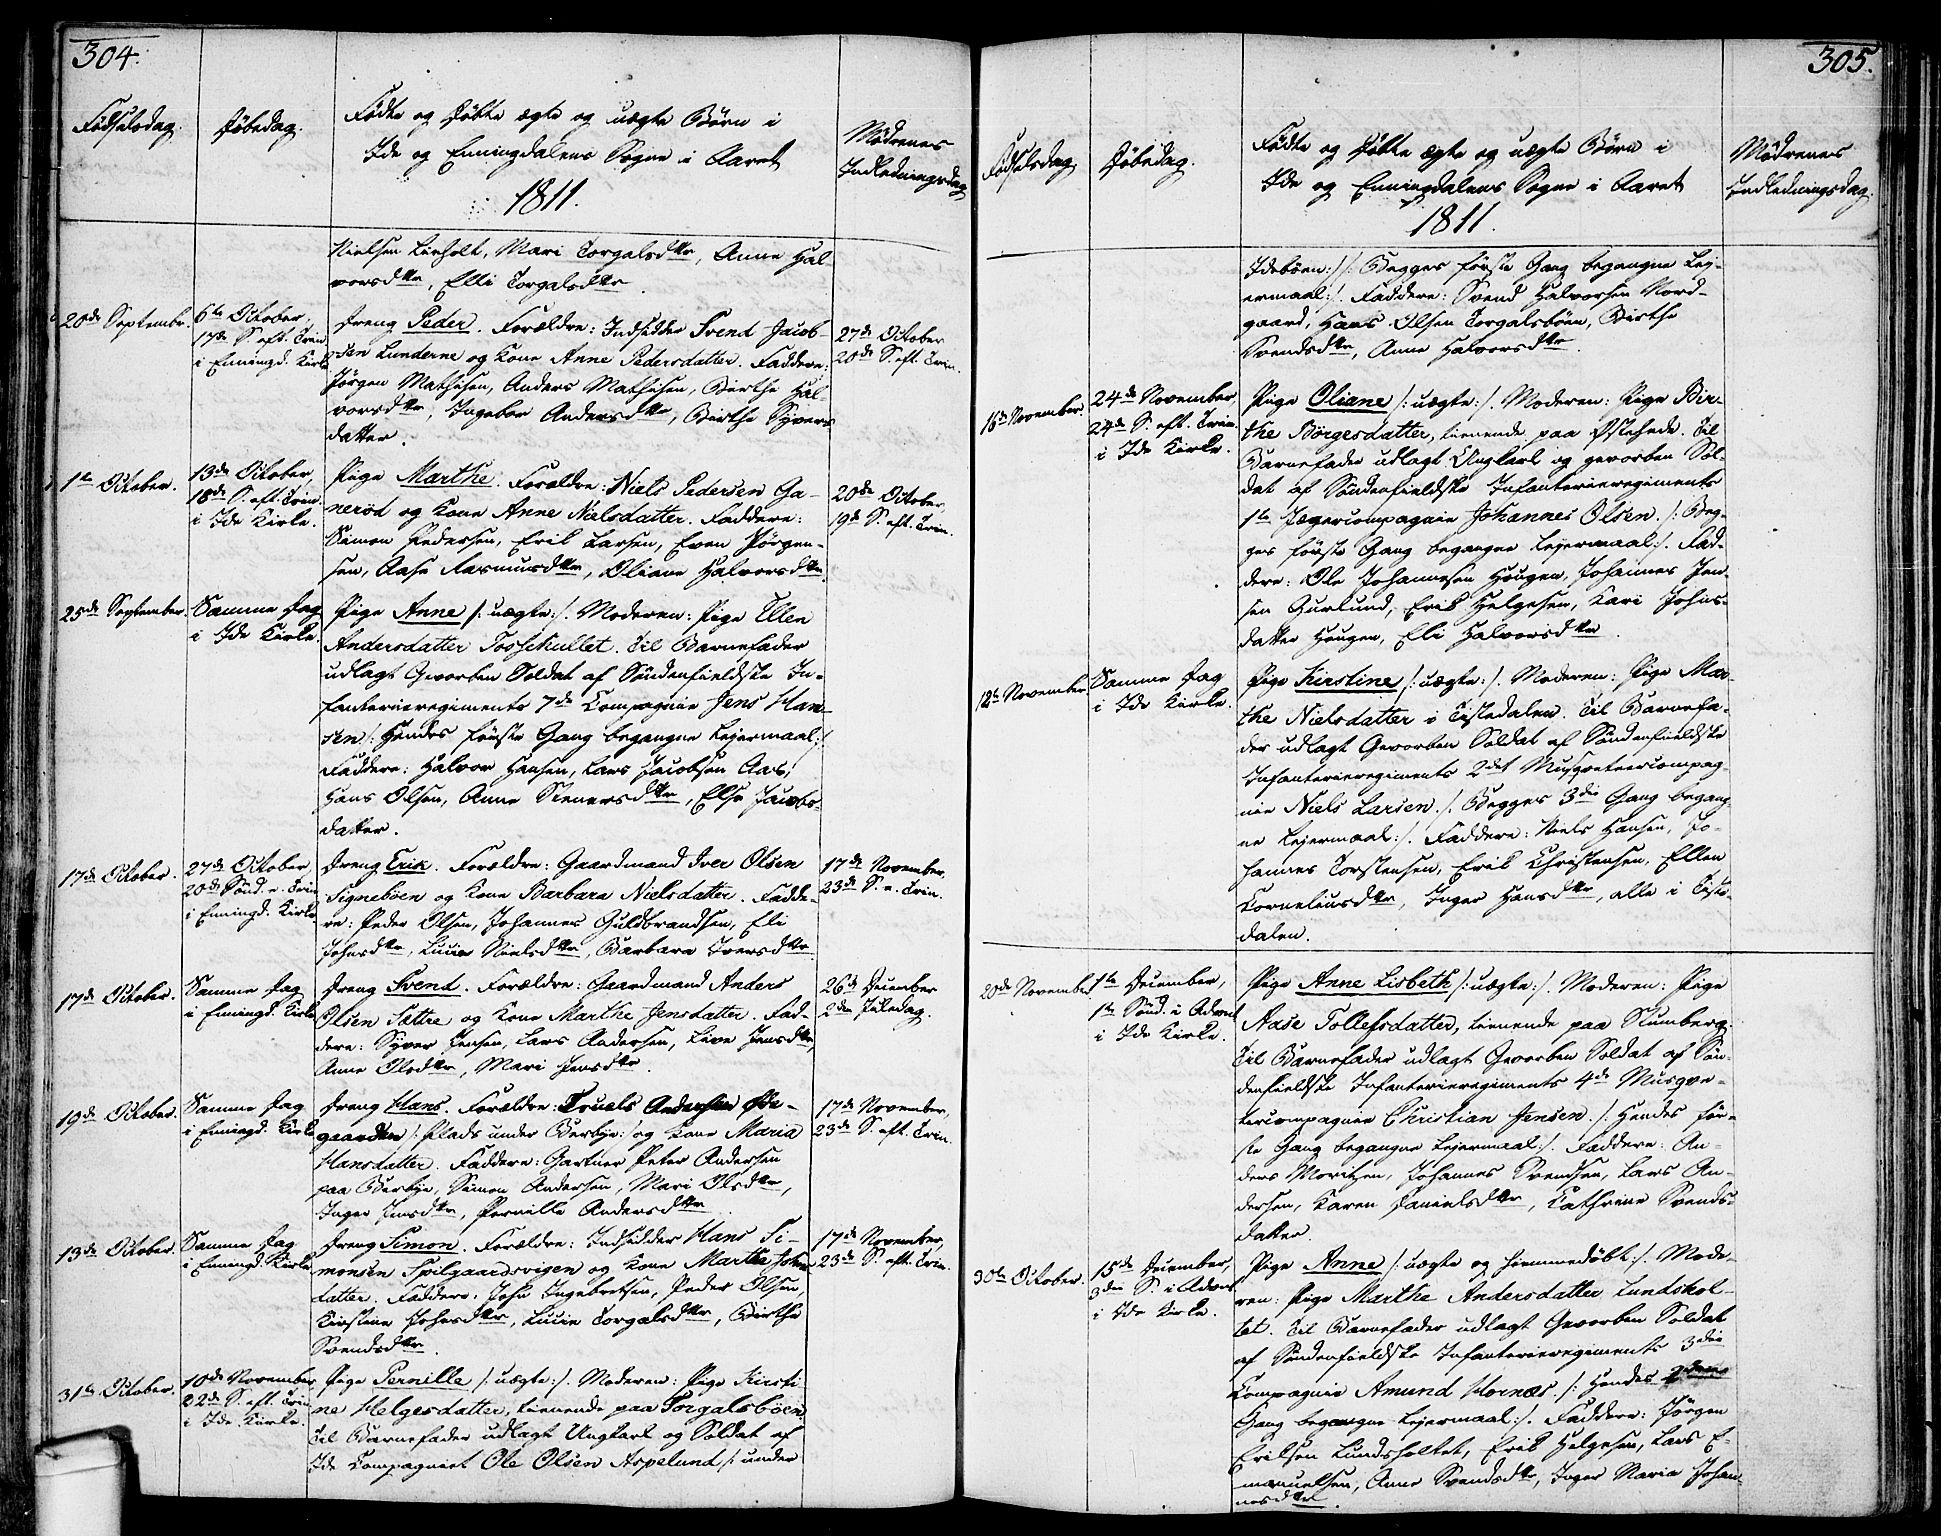 304.
Fødselsdag.
Døbedag.
Fødte og Døbte ægte og uægte Børn i
Ide og Enningdalens Sogne i Aaret
1811.
Mødrenes
Indledningsdag
Nielsen Liholt, Mari Torgalsdttr, Anne Hal-
vorsdttr, Elli Torgalsdttr.
20de Septembr.
6te October,
17de S. eft. Trin.
i Enningd. Kirke
Dreng Peder. Forældre: Indsidder Svend Jacob-
sen Lunderne og Kone Anne Pedersdatter. Faddere:
Jørgen Mathisen, Anders Mathisen, Birthe Hal-
vorsdttr, Ingebor Andersdttr, Birthe Syvers
datter.
27de October
20de S. eft. Trin.
1te October.
13de October,
18de S. eft. Trin.
i Ide Kirke.
Pige Marthe. Forældre: Niels Pedersen Ga-
nerød og Kone Anne Nielsdatter. Faddere:
Simon Pedersen, Erik Larsen, Even Jørgen-
sen, Aase Rasmusdttr, Oliane Halvorsdttr.
20de October,
19de S. eft. Trin.
25de September.
Samme Dag
i Ide Kirke.
Pige Anne /: uægte :/. Moderen: Pige Ellen
Andersdatter Tossehullet. Til Barnefader
udlagt Gevorben Soldat af Søndenfieldske In-
fanterieregiments 7de Compagnie Jens Han-
sen /: Hendes første Gang begangne Leiermaal :/
Faddere: Halvor Hansen, Lars Jacobsen Aas,
Hans Olsen, Anne Stenersdttr, Else Jacobs-
datter.
17de October.
27de October
20de Sønd. e. Trin
i Enningd. Kirke
Dreng Erik. Forældre: Gaardmand Iver Olsen
Signebøen og Kone Barbara Nielsdatter. Fadde-
re: Peder Olsen, Johannes Guldbrandsen, Eli
Johnsdttr, Lucie Nielsdttr, Barbara Iversdttr
17de November,
23de S. e. Trin.
17de October.
Samme Dag
i Enningd. Kirke
Dreng Svend. Forældre: Gaardmand Anders
Olsen Sættre og Kone Marthe Jensdatter. Fad-
dere: Syver Jensen, Lars Andersen, Live Jensdttr,
Anne Olsdttr, Mari Jensdttr.
26de December
2den Juledag.
19de October.
Samme Dag
i Enningd. Kirke
Dreng Hans. Forældre: Truels Andersen Øde-
gaarden /: Plads under Berbye :/ og Kone Maria
Hansdatter. Faddere: Gartner Peter Andersen
paa Berbye, Simon Andersen, Mari Olsdttr,
Inger Jensdttr, Pernille Andersdttr.
17de November,
23de S. eft. Trin.
13de October.
Samme Dag
i Enningd. Kirke
Dreng Simon. Forældre: Indsidder Hans Si-
monsen Spilgaardsvigen og Kone Marthe Johns
datter. Faddere: John Ingebretsen, Peder Olsen,
Kirstine Johnsdttr, Lucie Torgalsdttr, Birthe
Svendsdttr.
17de November,
23de S. eft. Trin.
31te October.
10de November
22de S. eft. Trin
i Ide Kirke.
Pige Pernille /: uægte :/. Moderen: Pige Kirsti
ne Helgesdatter, tienende paa Torgalsbøen.
Til Barnefader udlagt Ungkarl og Soldat af
Ide Compagniet Ole Olsen Aspelund /: under
305.
Fødselsdag
Døbedag.
Fødte og Døbte ægte og uægte Børn i
Ide og Enningdalens Sogne i Aaret
1811.
Mødrenes
Indledningsdag.
Idebøen :/ /: Begges første Gang begangne Lej-
ermaal :/. Faddere: Svend Halvorsen Nord-
gaard, Hans Olsen Torgalsbøen, Birthe
Svendsdttr, Anne Halvorsdttr.
16de November.
24de November,
24de S. eft. Trin.
i Ide Kirke.
Pige Oliane /: uægte :/. Moderen: Pige Bir-
the Børgesdatter, tienende paa Østehede. Til
Barnefader udlagt Ungkarl og gevorben Sol-
dat af Søndenfieldske Infanterieregiments
1te Jægercompagnie Johannes Olsen. /: Beg-
ges første Gang begangne Lejermaal :/. Fad-
dere: Ole Johannesen Hougen, Johannes Jen-
sen Gurlund, Erik Helgesen, Kari Johns-
datter Hougen, Eli Halvorsdttr.
12te November.
Samme Dag
i Ide Kirke.
Pige Kirstine /: uægte :/. Moderen: Pige Mar-
the Nielsdatter i Tistedalen. Til Barnefa-
der udlagt Gevorben Soldat af Søndenfieldske
Infanterieregiments 2det Musqveteercompag-
nie Niels Larsen. /: Begges 3die Gang begang
ne Lejermaal :/. Faddere: Niels Hansen, Jo-
hannes Torstensen, Erik Christensen, Ellen
Corneliusdttr, Inger Hansdttr, alle i Tiste-
dalen.
20de November
1te December,
1te Sønd. i Advent
i Ide Kirke.
Pige Anne Lisbeth /: uægte :/. Moderen: Pige
Aase Tollefsdatter, tienende paa Stumberg.
Til Barnefader udlagt Gevorben Soldat af Søn-
denfieldske Infanterieregiments 4de Musqve-
tercompagnie Christian Jensen /: Hendes før-
ste Gang begangne Lejermaal :/. Faddere: An-
ders Moritzen, Johannes Svendsen, Lars An-
dersen, Karen Danielsdttr, Kathrine Svends-
datter.
30te October.
15de December,
3die S. i Advent
i Ide Kirke.
Pige Anne /: uægte og hiemmedøbt :/. Mode-
ren: Pige Marthe Andersdatter Lundskol-
tet. Til Barnefader udlagt Gevorben Soldat
af Søndenfieldske Infanterieregiments 3die
Compagnie Amund Hornæs. /: Hendes
Gang begangne Lejermaal :/. Faddere: Jørgen
Eriksen Lundsholtet, Erik Helgesen, Lars E-
manuelsen, Anne Svendsdttr, Inger Maria Johan
nesdttr.